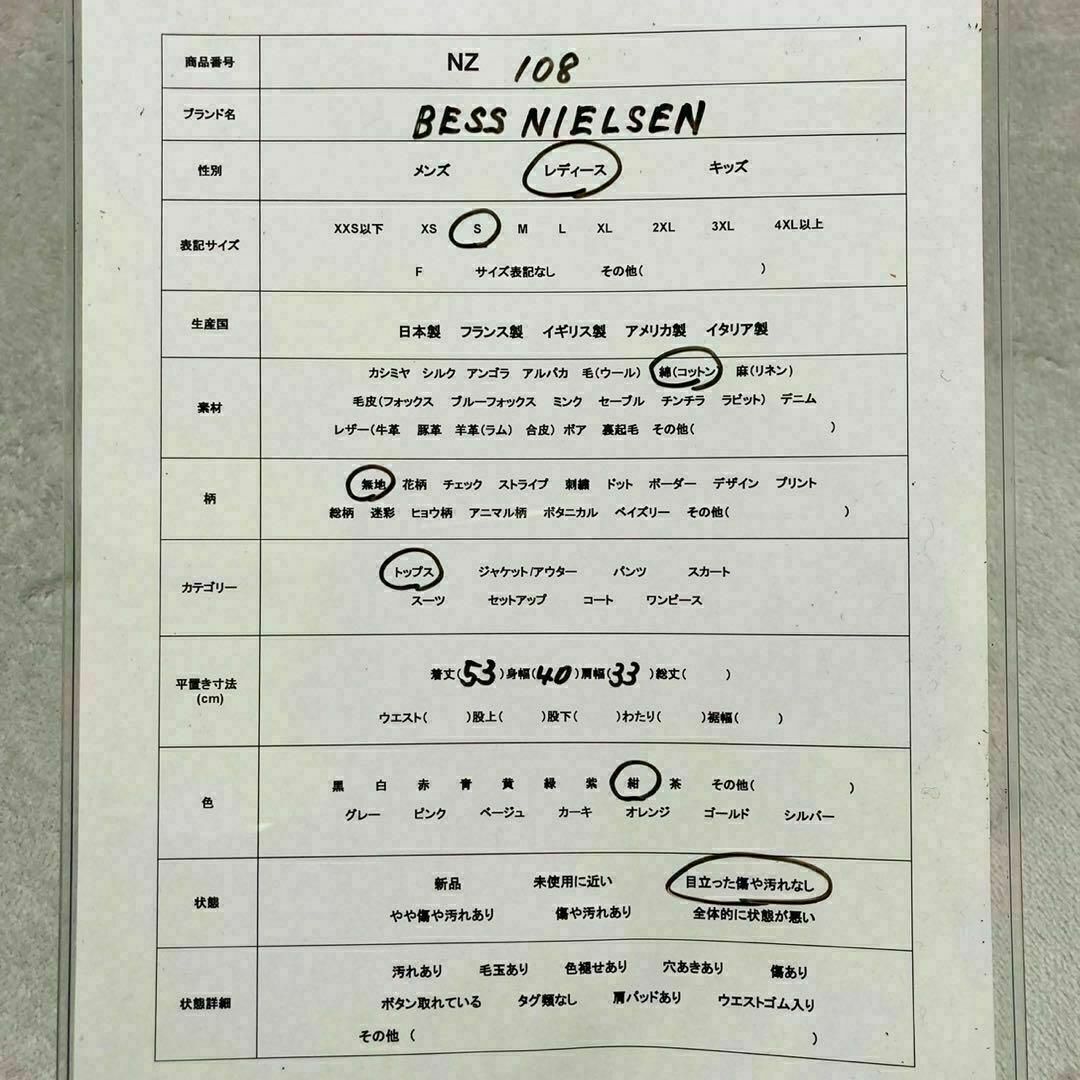 商品番号 NZ 108
ブランド名 BESS NIELSEN
性別 メンズ レディース キッズ
表記サイズ
XXS以下 XS S M L XL 2XL 3XL 4XL以上
F サイズ表記なし その他( )
生産国 日本製 フランス製 イギリス製 アメリカ製 イタリア製
素材
カシミヤ シルク アンゴラ アルパカ 毛(ウール) 綿(コットン) 麻(リネン)
毛皮(フォックス ブルーフォックス ミンク セーブル チンチラ ラビット) デニム
レザー(牛革 豚革 羊革(ラム) 合皮) ボア 裏起毛 その他( )
柄
無地 花柄 チェック ストライプ 刺繍 ドット ボーダー デザイン プリント
総柄 迷彩 ヒョウ柄 アニマル柄 ボタニカル ペイズリー その他( )
カテゴリー
トップス ジャケット/アウター パンツ スカート
スーツ セットアップ コート ワンピース
平置き寸法
(cm)
着丈(53)身幅(40)肩幅(33)総丈( )
ウエスト( )股上( )股下( )わたり( )裾幅( )
色
黒 白 赤 青 黄 緑 紫 紺 茶 その他( )
グレー ピンク ベージュ カーキ オレンジ ゴールド シルバー
状態
新品 未使用に近い 目立った傷や汚れなし
やや傷や汚れあり 傷や汚れあり 全体的に状態が悪い
状態詳細
汚れあり 毛玉あり 色褪せあり 穴あきあり 傷あり
ボタン取れている タグ類なし 肩パッドあり ウエストゴム入り
その他 ( )